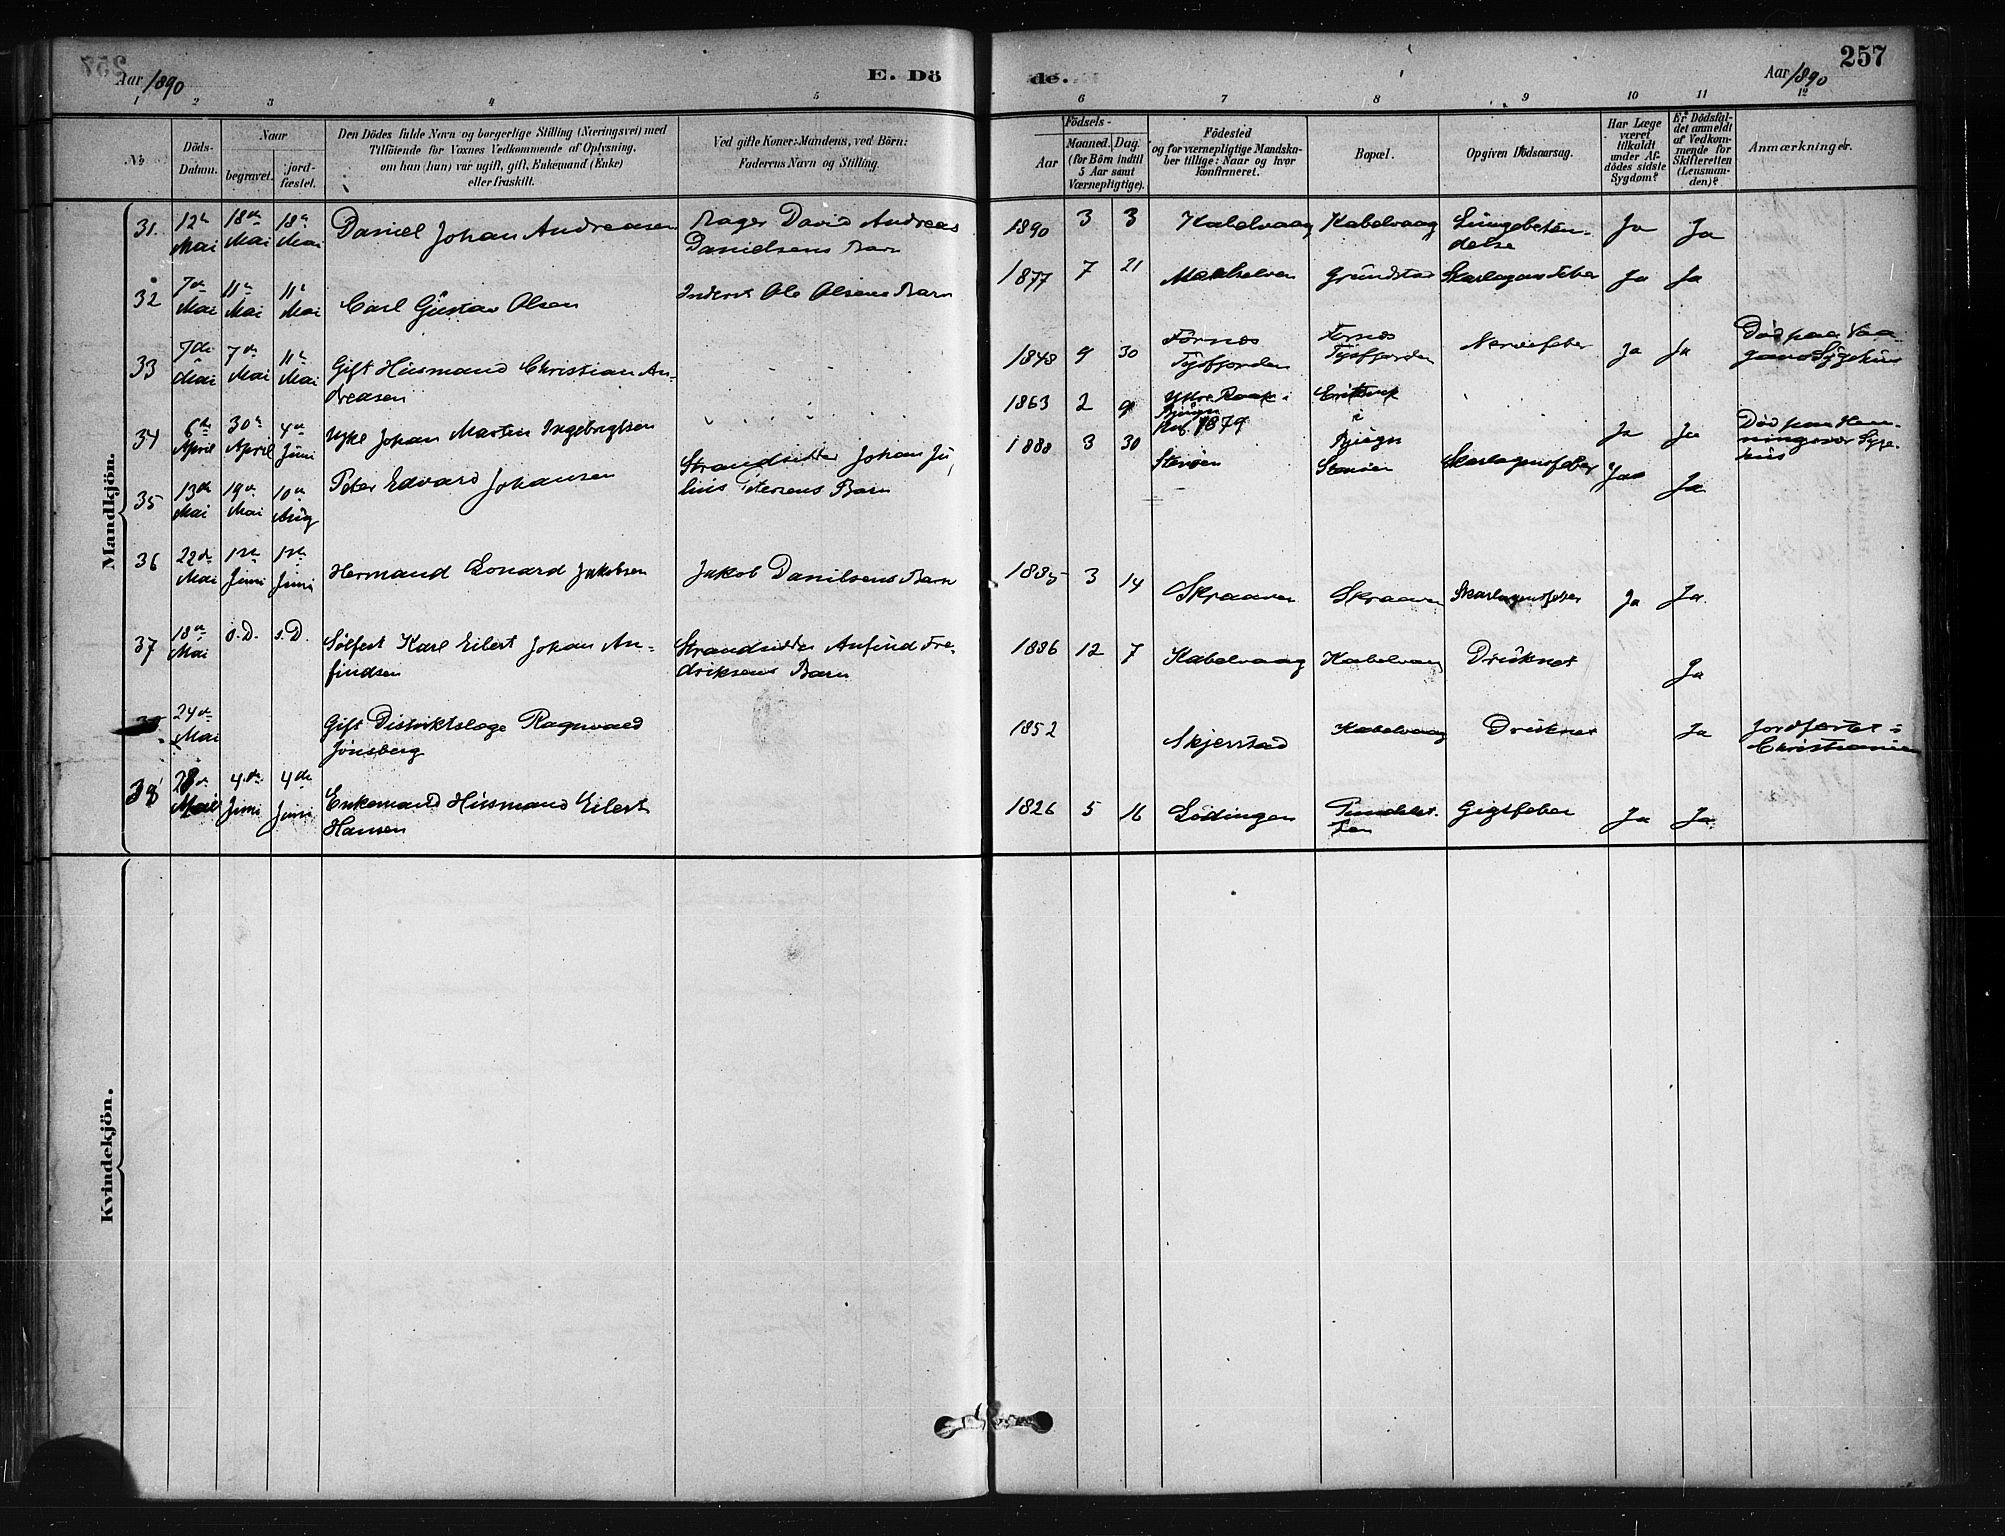 257
Aar 1890
E. Dö
de.
Aar 1890
1 2 3 4 5 6 7 8 9 10 11 12
No
Döds-
Datum.
Naar
begravet.
jord-
fæstet.
Den Dödes fulde Navn og borgerlige Stilling (Næringsvei) med
Tilföiende for Voxnes Vedkommende af Oplysning,
om han (hun) var ugift, gift, Enkemand (Enke)
eller fraskilt.
Ved gifte Koner: Mandens, ved Börn:
Faderens Navn og Stilling.
Födsels-
Aar
Maaned.
Dag.
(for Börn indtil
5 Aar samt
Værnepligtige).
Födested
og for værnepligtige Mandska-
ber tillige: Naar og hvor
konfirmeret.
Bopæl.
Opgiven Dödsaarsag.
Har Læge
været
tilkaldt
under Af-
dödes sidste
Sygdom?
Er Dödsfal-
det anmeldt
af Vedkom-
mende for
Skifteretten
(Lensman-
den)?
Anmærkninger.
Mandkjön.
31. 12te Mai 18de Mai 18de Mai Daniel Johan Andreasen Bager David Andreas
Danielsens Barn 1890 3 3 Kabelvaag Kabelvaag Lungebetæn-
delse Ja Ja
32 7de Mai 11te Mai 11te Mai Carl Gustav Olsen Inderst Ole Olsens Barn 1877 7 21 Grundstad Skarlagensfeber Ja Ja
33 7de Mai 7de Mai 11te Mai Gift Husmand Christian An-
dreasen 1848 9 30 Fornæs
Tysfjorden Fornæs
Tysfjorden Nervefeber Ja Ja Död paa Vaa-
gans Sygehus
34 6te April 30te April 4de Juni Ugke Johan Martin Ingebrigtsen 1863 2 9 i
Bjugn
Kof. 1879 i
Bjugn Ja Ja Död paa Hen-
ningsvær Syge-
hus
35 13de Mai 19de Mai 10de Aug Peter Edvard Johansen Strandsidder Johan Ju-
lius Petersens Barn 1888 3 30 Storöen Storöen Skarlagensfeber Ja Ja
36 22de Mai 1ste Juni 1ste Juni Hermand Lonard Jakobsen Jakob Danilsens Barn 1885 3 14 Skraaven Skraaven Skarlagensfeber Ja Ja
37 18de Mai s.D. s.D. Sölfest Karl Eilert Johan An-
findsen Strandsidder Anfind Fre-
driksens Barn 1886 12 7 Kabelvaag Kabelvaag Druknet Ja
24de Mai Gift Distriktslæge Ragnvald
Jönsberg 1852 Skjerstad Kabelvaag Druknet Ja Jordfæstet i
Christiania
38 28de Mai 4de Juni 4de Juni Enkemand Husmand Eilert
Hansen 1826 5 16 Lödingen Gigtfeber Ja Ja
Kvindekjön.